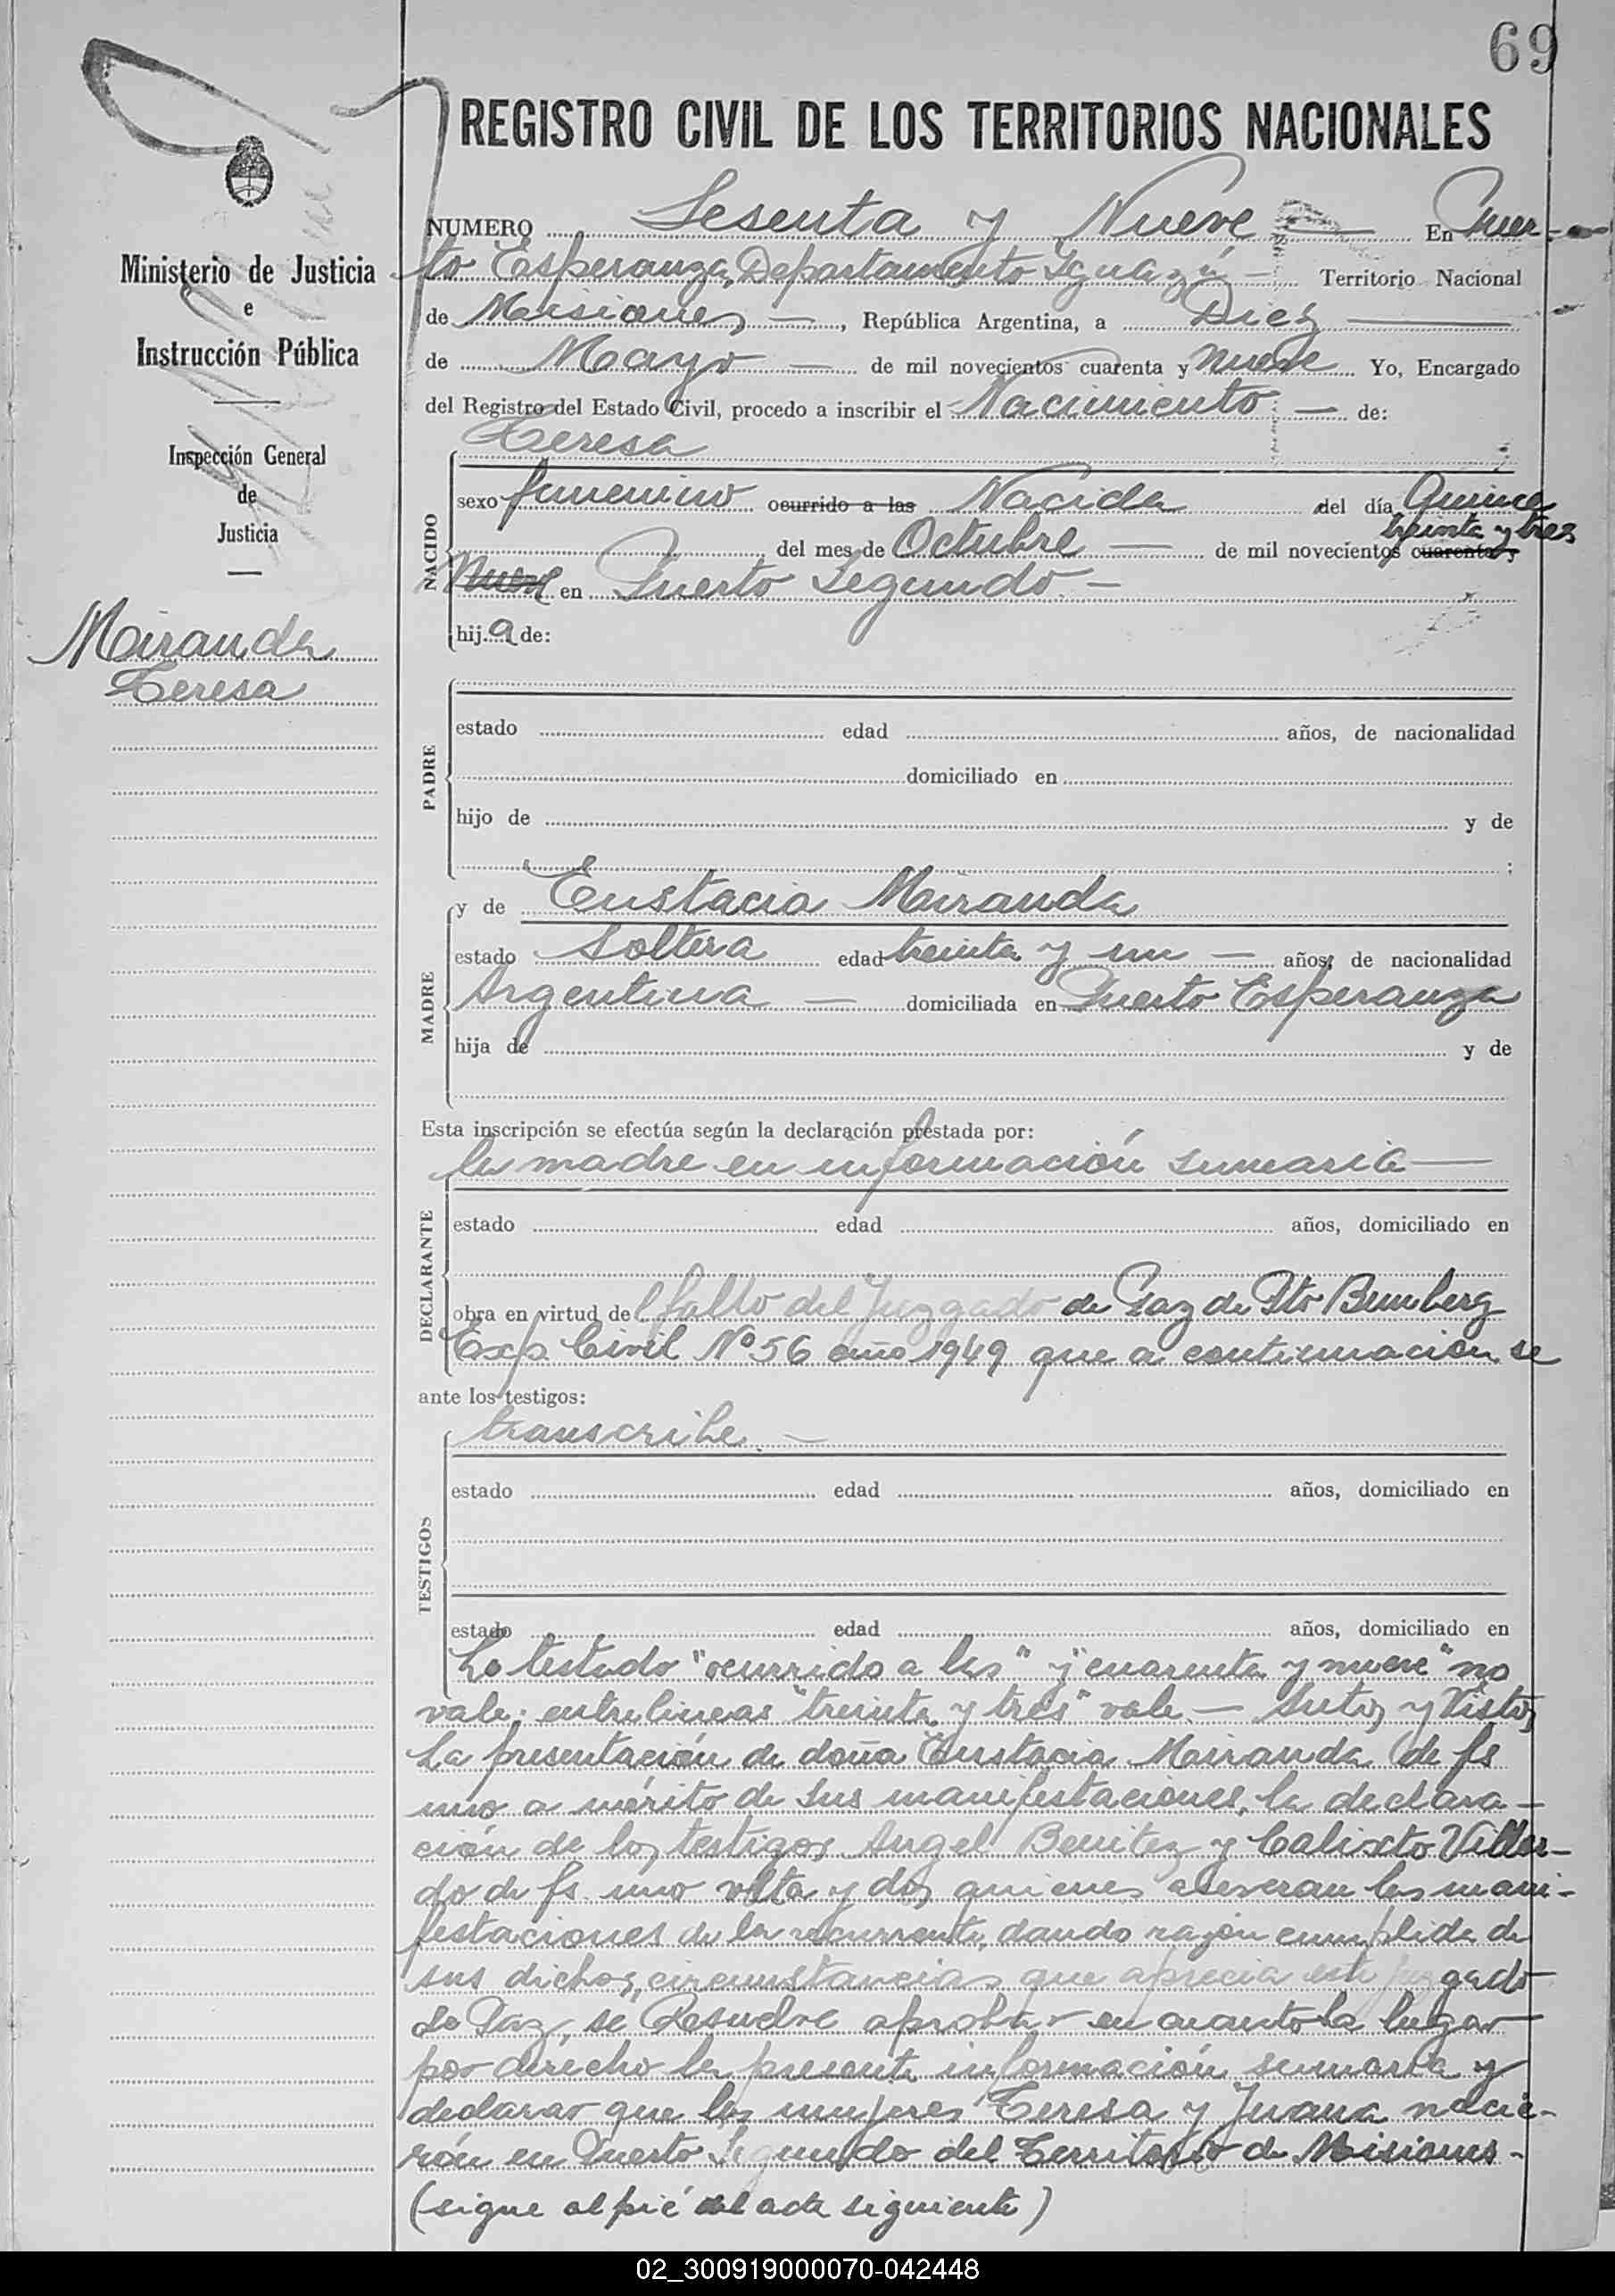 69
REGISTRO CIVIL DE LOS TERRITORIOS NACIONALES
Ministerio de Justicia
e
Instrucción Pública
Inspección General
de
Justicia
Miranda
Teresa
NUMERO Sesenta y Nueve — En Puer-
to Esperanza, Departamento Iguazú — Territorio Nacional
de Misiones — , República Argentina, a Diez —
de Mayo — de mil novecientos cuarenta y nueve Yo, Encargado
del Registro del Estado Civil, procedo a inscribir el Nacimiento — de:
Teresa
NACIDO
sexo femenino ocurrido a las Nacida del día Quince
treinta y tres
del mes de Octubre — de mil novecientos cuarenta y
Nueve en Puerto Segundo. —
hij a de:
PADRE
estado edad años, de nacionalidad
domiciliado en
hijo de y de
;
MADRE
y de Eustacia Miranda
estado Soltera edad treinta y un — años; de nacionalidad
Argentina — domiciliada en Puerto Esperanza
hija de y de
Esta inscripción se efectúa según la declaración prestada por:
la madre en información sumaria —
DECLARANTE
estado edad años, domiciliado en
obra en virtud del fallo del Juzgado de Paz de Pto Bemberg
Exp. Civil Nº 56 año 1949 que a continuación se
ante los testigos:
transcribe. —
TESTIGOS
estado edad años, domiciliado en
estado edad años, domiciliado en
Lo testado "ocurrido a las" y "cuarenta y nueve" no
vale; entrelineas "treinta y tres" vale. — Autos y Vistos
La presentación de doña Eustacia Miranda de fs
uno a mérito de sus manifestaciones, la declara-
ción de los testigos Angel Benitez y Calixto Villar-
do de fs. uno vlta y dos quienes aseveran las mani-
festaciones de la recurrente, dando razón cumplida de
sus dichos, circunstancias que aprecia este juzgado
de Paz, se Resuelve aprobar en cuanto ha lugar
por derecho la presente información sumaria y
declarar que las mujeres Teresa y Juana nacie-
rón en Puerto Segundo del Territorio de Misiones -
(sigue al pié del acta siguiente)
02_300919000070-042448